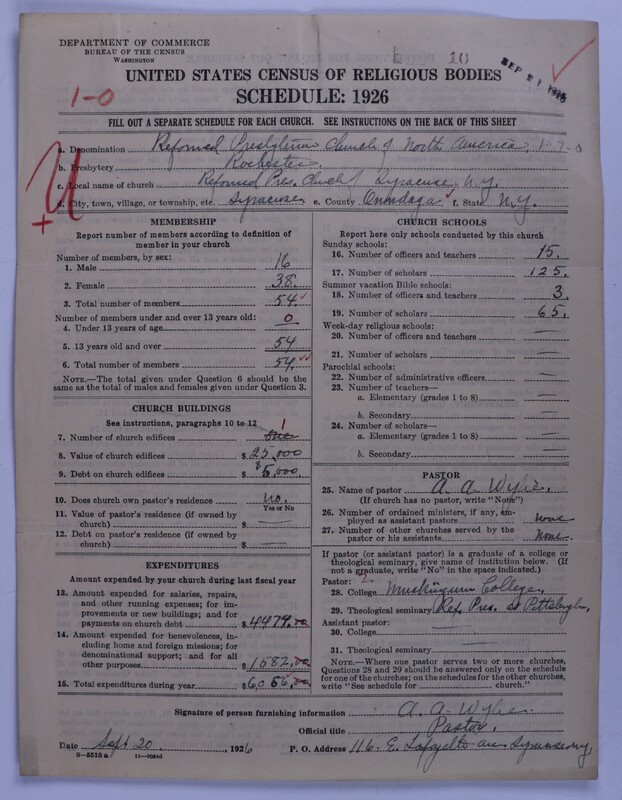 DEPARTMENT OF COMMERCE
BUREAU OF THE CENSUS
WASHINGTON
10
SEP 21 1926
UNITED STATES CENSUS OF RELIGIOUS BODIES
1-0
SCHEDULE: 1926
FILL OUT A SEPARATE SCHEDULE FOR EACH CHURCH. SEE INSTRUCTIONS ON THE BACK OF THIS SHEET
a. Denomination Reformed Presbyterian Church of North America, 1-7-0
b. Presbytery Rochester.
c. Local name of church Reformed Pres. Church Syracuse, N.Y.
d. City, town, village, or township, etc. Syracuse e. County Onondaga f. State N.Y.
MEMBERSHIP
Report number of members according to definition of member in your church
Number of members, by sex:
1. Male 16
2. Female 38
3. Total number of members 54
Number of members under and over 13 years old:
4. Under 13 years of age 0
5. 13 years old and over 54
6. Total number of members 54
NOTE.—The total given under Question 6 should be the same as the total of males and females given under Question 3.
CHURCH BUILDINGS
See instructions, paragraphs 10 to 12
7. Number of church edifices one 1
8. Value of church edifices $ 25,000
9. Debt on church edifices $ $5,000
10. Does church own pastor's residence no.
Yes or No
11. Value of pastor's residence (if owned by church) $ —
12. Debt on pastor's residence (if owned by church) $ —
EXPENDITURES
Amount expended by your church during last fiscal year
13. Amount expended for salaries, repairs, and other running expenses; for improvements or new buildings; and for payments on church debt $ 4479.00
14. Amount expended for benevolences, including home and foreign missions; for denominational support; and for all other purposes $ 1,582.00
15. Total expenditures during year $ 6056.00
CHURCH SCHOOLS
Report here only schools conducted by this church
Sunday schools:
16. Number of officers and teachers 15.
17. Number of scholars 125.
Summer vacation Bible schools:
18. Number of officers and teachers 3.
19. Number of scholars 65.
Week-day religious schools:
20. Number of officers and teachers —
21. Number of scholars —
Parochial schools:
22. Number of administrative officers —
23. Number of teachers—
a. Elementary (grades 1 to 8) —
b. Secondary —
24. Number of scholars—
a. Elementary (grades 1 to 8) —
b. Secondary —
PASTOR
25. Name of pastor A. A. Wylie.
(If church has no pastor, write "None")
26. Number of ordained ministers, if any, employed as assistant pastors none
27. Number of other churches served by the pastor or his assistants none.
If pastor (or assistant pastor) is a graduate of a college or theological seminary, give name of institution below. (If not a graduate, write "No" in the space indicated.)
Pastor: 2
28. College Muskingum College,
29. Theological seminary Ref. Pres. at Pittsburgh,
Assistant pastor:
30. College
31. Theological seminary —
NOTE.—Where one pastor serves two or more churches, Questions 28 and 29 should be answered only on the schedule for one of the churches; on the schedules for the other churches, write "See schedule for church."
Signature of person furnishing information A. A. Wylie.
Official title Pastor.
Date Sept 20, 1926 P. O. Address 116. E. Lafayette ave Syracuse ny,
8—5518 a